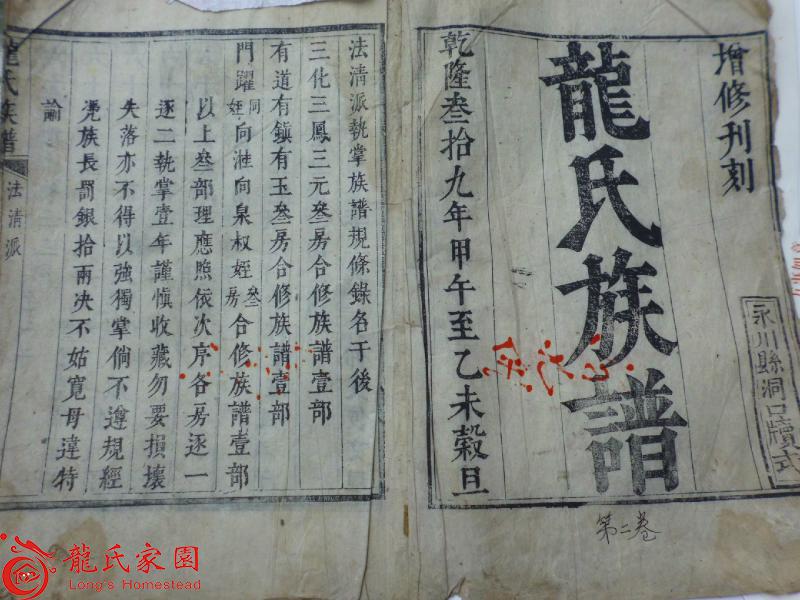 增修刊刻
龍氏族譜
永川縣洞口牘式
乾隆叁拾九年甲午至乙未穀旦
第二卷
法清派執掌族譜規條錄名于後
三化三鳳三元叁房合修族譜壹部
有道有鎮有玉叁房合修族譜壹部
門躍同姪向淮向泉叔姪叁房合修族譜壹部
以上叁部理應照依次序各房逐一
逐二執掌壹年謹慎收藏勿要損壞
失落亦不得以強獨掌倘不遵規經
凴族長罰銀拾兩决不姑寬毋違特
諭
龍氏族譜
法清派
龍氏家園
Long's Homestead